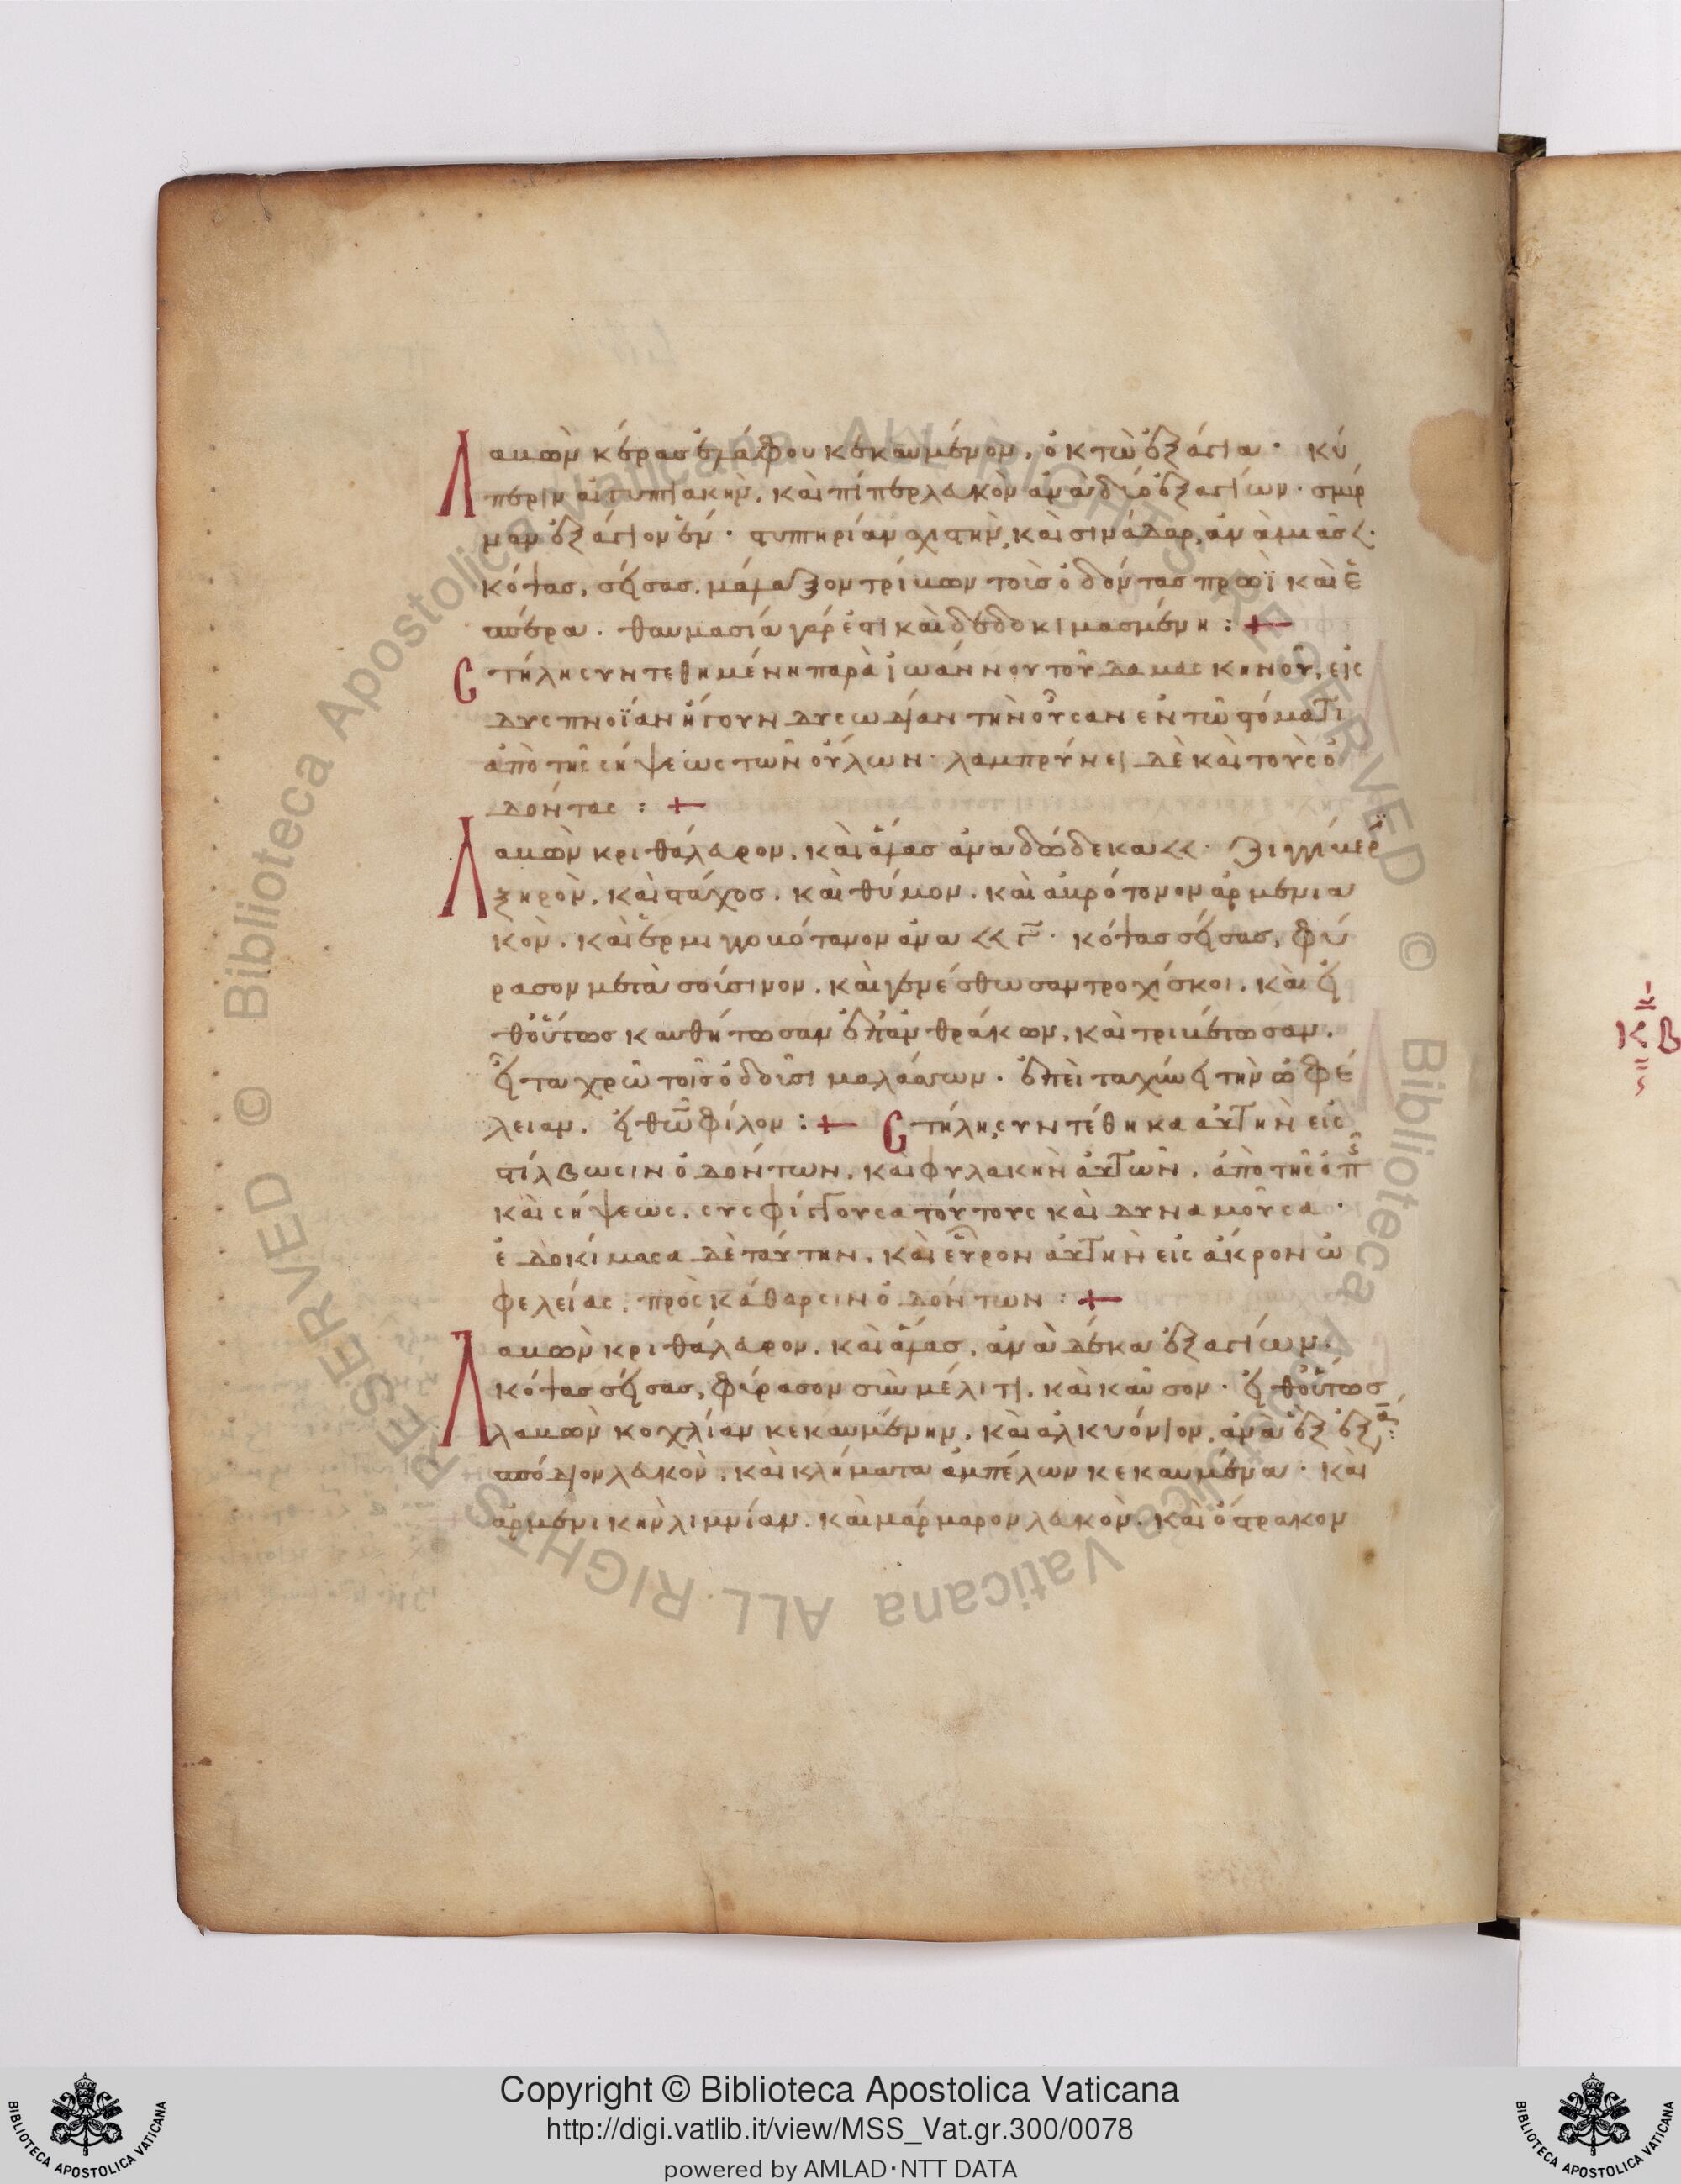 Λαβὼν κέρας ἐλάφου κεκαυμένον, ὀκτὼ ἐξάγια· κύ
περιν αἰγυπτιακὴν, καὶ πίπερ λευκὸν ἀνὰ δύο ἐξαγίων· σμύρ
ναν ἐξάγιον ἕν· στυπηρίαν σχιστὴν, καὶ σινάδαρ, ἀνὰ μιᾶς
κόψας, σήσας, μάλαξον τρίβων τοὶς ὀδόντας πρωῒ καὶ ἑ
σπέρα. θαυμασία γάρ ἐστι καὶ δεδοκιμασμένη:+
Στήλη συντεθημένη παρὰ ἰωάννου τοῦ δαμασκηνοῦ, εἰς
δυσπνοΐαν ἤγουν δυσωδίαν τὴν οὖσαν ἐν τῶ στόματι
ἀπὸ τῆς σήψεως τῶν οὔλων· λαμπρύνει δὲ καὶ τοὺς ὀ
δόντας:+
Λαβὼν κριθάλευρον, καὶ ἅλας ἀνὰ δώδεκα
ξηρὸν, καὶ στάχος, καὶ θύμον, καὶ ἀβρότονον ἀρμενια
κὸν, κόψας σήσας, φύ
ρασον μετὰ καὶ γενέσθωσαν τροχίσκοι, καὶ εἶ
θοὕτως καυθήτωσαν ἐπ' ἀνθράκων, καὶ τριβέτωσαν.
εἶτα χρῶ τοῖς ὀδοῦσι μαλάσσων· ἐπεὶ ταχύνει τὴν ὠφέ
λειαν, φίλον:+ Στήλη, συντέθηκα αὐτὴν εἰς
στίλβωσιν ὀδόντων, καὶ φυλακὴν αὐτῶν, ἀπὸ τῆς ὀπῆς
καὶ σήψεως, συσφίγγουσα τούτους καὶ δυναμοῦσα·
ἐδοκίμασα δὲ ταύτην, καὶ εὗρον αὐτὴν εἰς ἄκρον ὠ
φελείας, πρὸς κάθαρσιν ὀδόντων:+
Λαβὼν κριθάλευρον, καὶ ἅλας, ἀνὰ δέκα ἐξαγίων·
κόψας σήσας, φύρασον σὺν μέλιτι, καὶ καῦσον· εἶθ οὕτως
λαβὼν κοχλίαν κεκαυμένην, καὶ ἀλκυόνιον, ἀνὰ
σπόδιον λευκὸν, καὶ κλήματα ἀμπέλων κεκαυμένα· καὶ
ἀρμενικὴν λιμνίαν, καὶ μάρμαρον λευκὸν, καὶ ὄστρακον
κβ
Copyright © Biblioteca Apostolica Vaticana
http://digi.vatlib.it/view/MSS_Vat.gr.300/0078
powered by AMLAD·NTT DATA
BIBLIOTECA APOSTOLICA VATICANA
BIBLIOTECA APOSTOLICA VATICANA
© Biblioteca Apostolica Vaticana ALL RIGHTS RESERVED © Biblioteca Apostolica Vaticana ALL RIGHTS RESERVED